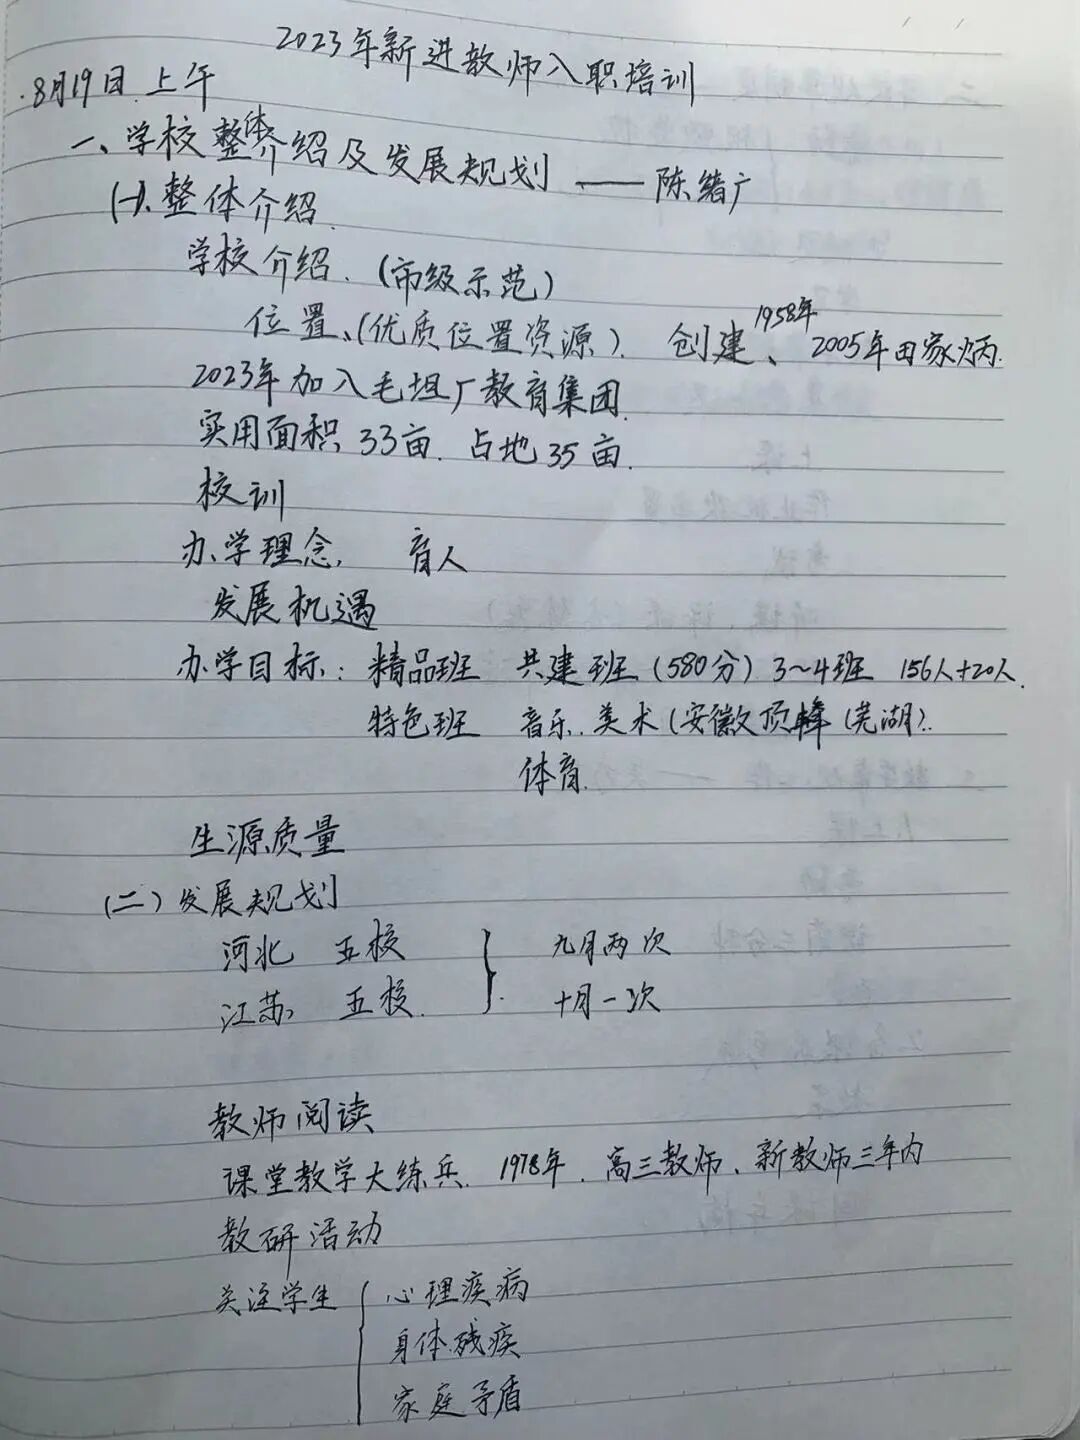 2023年新进教师入职培训
8月19日 上午
一、学校整体介绍及发展规划 —— 陈绪广
(一)、整体介绍
学校介绍.(市级示范)
位置、(优质位置资源). 创建1958年、2005年田家炳.
2023年加入毛坦厂教育集团.
实用面积33亩. 占地35亩.
校训
办学理念, 育人
发展机遇
办学目标: 精品班 共建班(580分) 3~4班 156人+20人.
特色班 音乐.美术(安徽顶峰(芜湖)).
体育.
生源质量
(二)发展规划
河北 五校 } 九月两次
江苏 五校. } 十月一次
教师阅读
课堂教学大练兵. 1978年. 高三教师、新教师三年内
教研活动
关注学生 { 心理疾病
身体残疾
家庭矛盾